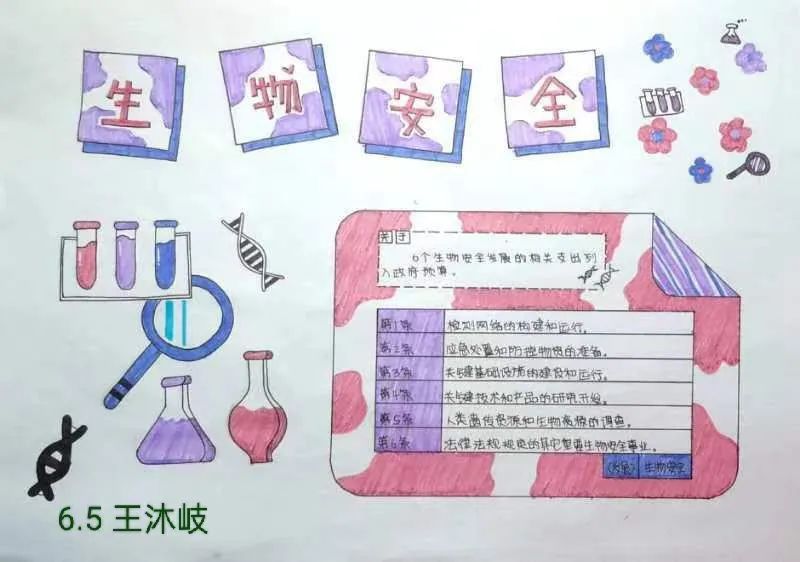 生物安全
关于
6个生物安全发展的相关支出列
入政府预算。
第1条 检测网络的构建和运行。
第2条 应急处置和防控物资的准备。
第3条 关键基础设施的建设和运行。
第4条 关键技术和产品的研究开发。
第5条 人类遗传资源和生物资源的调查。
第6条 法律法规规定的其它重要生物安全事业。
生物安全
6.5 王沐岐